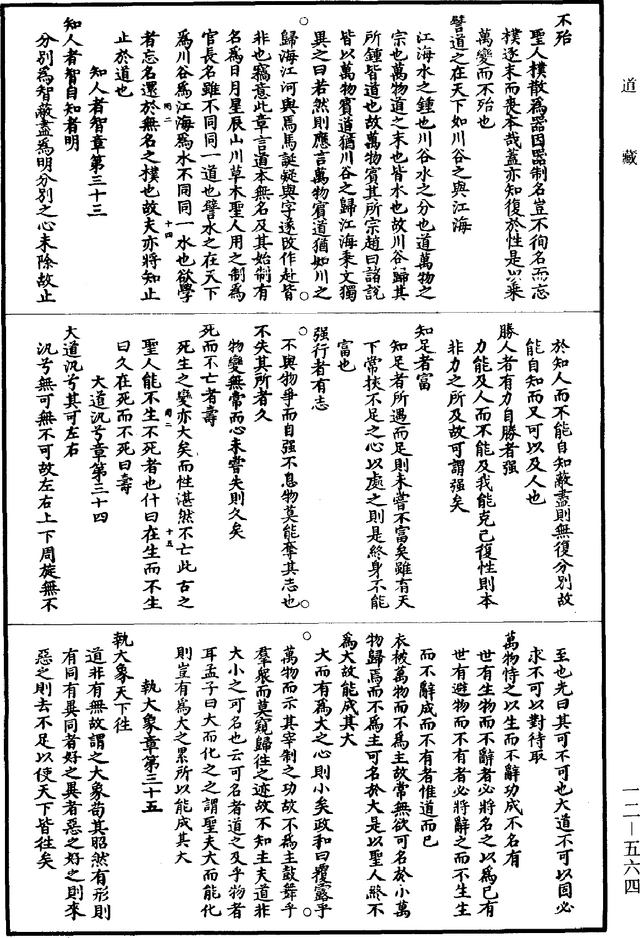 道藏
不殆
聖人樸散為器因器制名豈不徇名而忘
樸逐末而喪本哉蓋亦知復於性是以乘
萬變而不殆也
譬道之在天下如川谷之與江海
江海水之鍾也川谷水之分也道萬物之
宗也萬物道之末也皆水也故川谷歸其
所鍾皆道也故萬物賓其所宗趙曰諸說
皆以萬物賓道猶川谷之歸江海朱文獨
異之曰若然則應言萬物賓道猶如川之
歸海江河與焉馬誕疑與字遂改作赴皆
非也竊意此章言道本無名及其始制有
名為日月星辰山川草木聖人用之制為
官長名雖不同同一道也譬水之在天下
為川谷為江海為水不同同一水也欲學
者忘名還於無名之樸也故夫亦將知止
止於道也
知人者智章第三十三
知人者智自知者明
分別為智蔽盡為明分別之心未除故止
於知人而不能自知蔽盡則無復分別故
能自知而又可以及人也
勝人者有力自勝者强
力能及人而不能及我能克己復性則本
非力之所及故可謂强矣
知足者富
知足者所遇而足則未嘗不富矣雖有天
下常挾不足之心以處之則是終身不能
富也
强行者有志
不與物爭而自强不息物莫能奪其志也
不失其所者久
物變無常而心未嘗失則久矣
死而不亡者壽
死生之變亦大矣而性湛然不亡此古之
聖人能不生不死者也什曰在生而不生
曰久在死而不死曰壽
大道汎兮章第三十四
大道汎兮其可左右
汎兮無可無不可故左右上下周旋無不
至也先曰其可不可也大道不可以固必
求不可以對待取
萬物恃之以生而不辭功成不名有
世有生物而不辭者必將名之以為己有
世有避物而不有者必將辭之而不生生
而不辭成而不有者惟道而已
衣被萬物而不為主故常無欲可名於小萬
物歸焉而不為主可名於大是以聖人終不
為大故能成其大
大而有為大之心則小矣政和曰覆露乎
萬物而示其宰制之功故不為主鼓舞乎
羣衆而莫窺歸往之迹故不知主夫道非
大小之可名也云可名者道之及乎物者
耳孟子曰大而化之之謂聖夫大而能化
則豈有為大之累所以能成其大
執大象章第三十五
執大象天下往
道非有無故謂之大象苟其昭然有形則
有同有異同者好之異者惡之好之則來
惡之則去不足以使天下皆往矣
一二—五六四